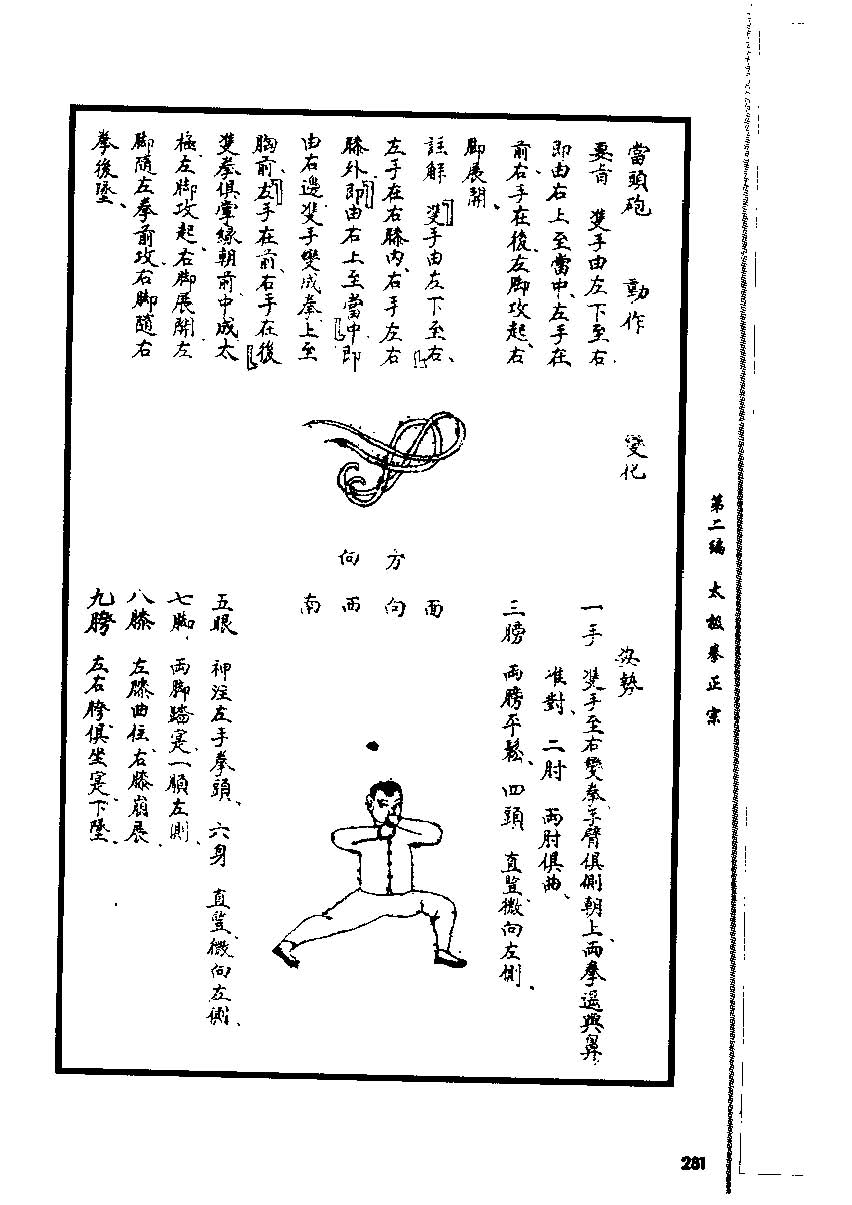 第二編 太極拳正宗
當頭砲 動作
要旨 雙手由左下至右、
即由右上至當中、左手在
前、右手在後、左脚攻起、右
脚展開、
註解 雙手由左下至右、
左手在右膝内、右手左右
膝外、即由右上至當中、即
由右邊雙手變成拳上至
胸前、左手在前、右手在後
雙拳俱掌緣朝前、中成太
極、左脚攻起、右脚展開、左
脚隨左拳前攻、右脚隨右
拳後墜、
變化
面
方向
向西
南
姿勢
一手 雙手至右變拳、手臂俱側朝上、兩拳遥與鼻
准對、二肘 兩肘俱曲、
三膀 兩膀平鬆、四頭 直竪、微向左側、
五眼 神注左手拳頭、六身 直竪、微向左側、
七脚 兩脚踏寔、一順左側、
八膝 左膝曲住、右膝展、
九胯 左右胯俱坐寔、下墜、
281